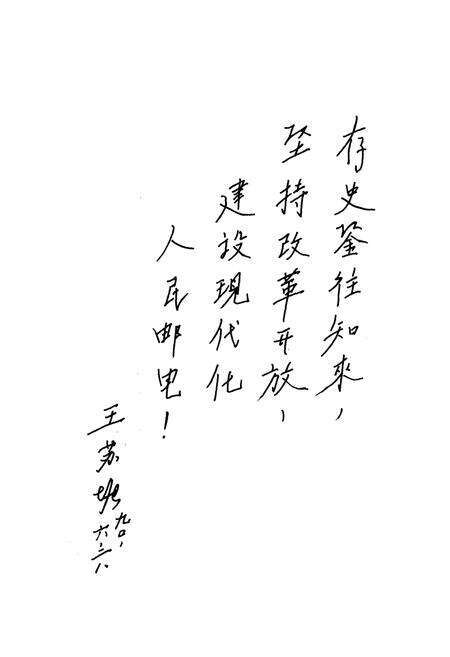 存史鉴往知來，
坚持改革开放，
建设現代化
人民邮电！
王苏
九〇、
六、